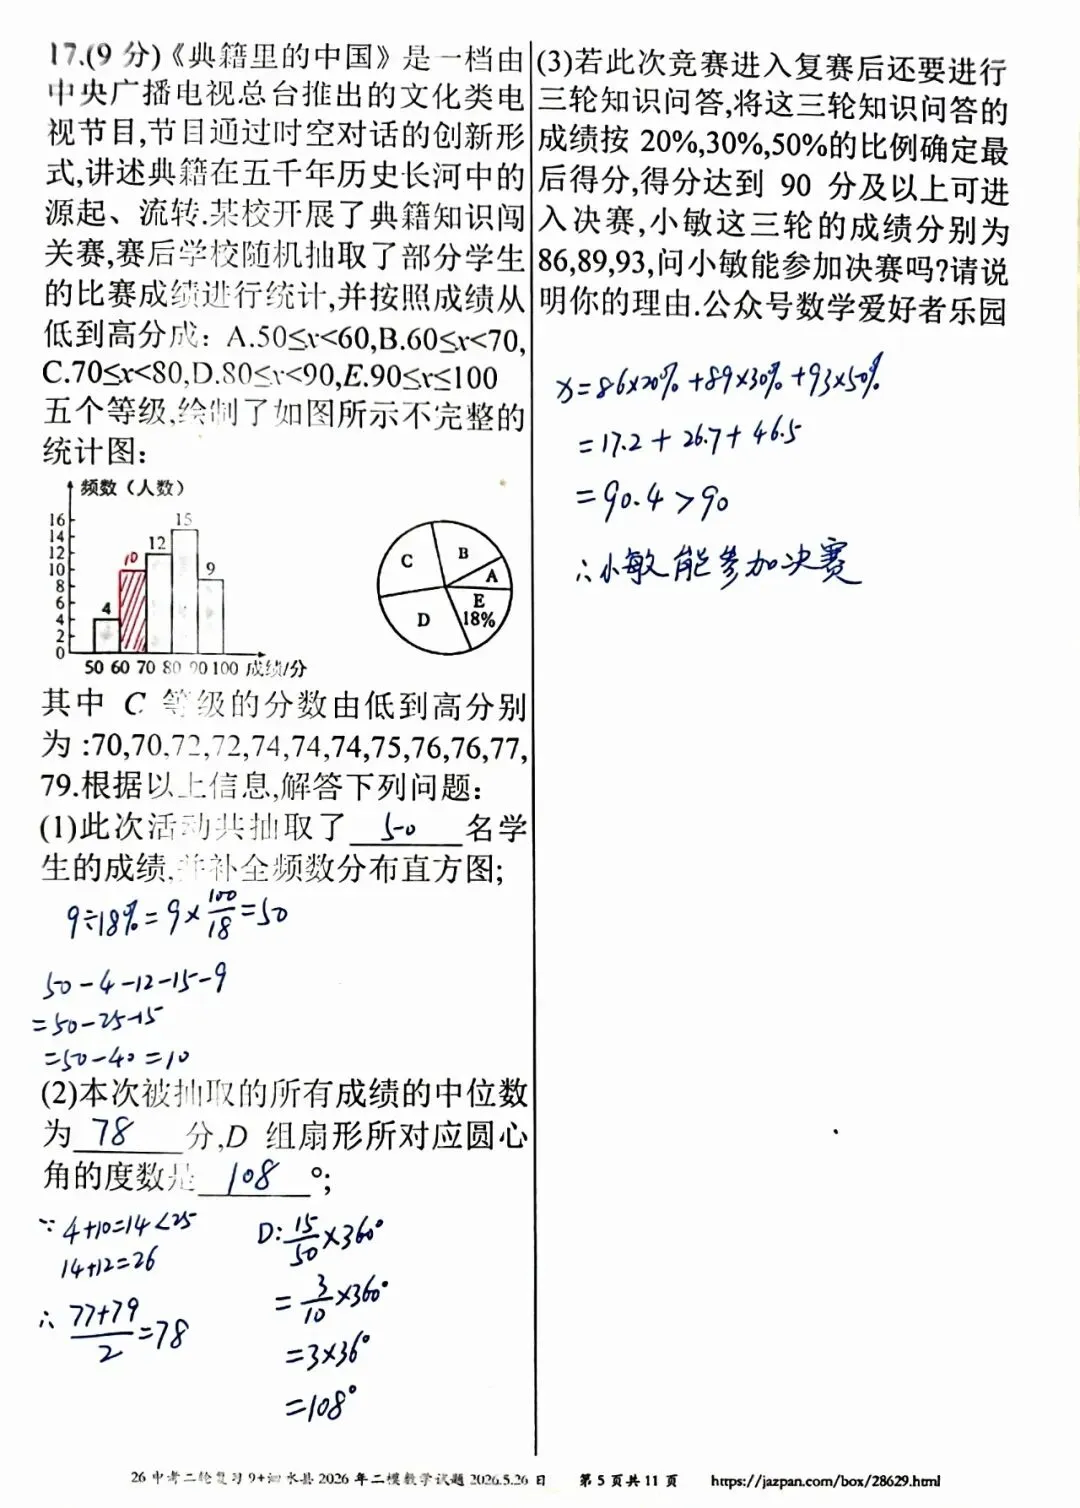 17.(9 分)《典籍里的中国》是一档由
中央广播电视总台推出的文化类电
视节目,节目通过时空对话的创新形
式,讲述典籍在五千年历史长河中的
源起、流转.某校开展了典籍知识闯
关赛,赛后学校随机抽取了部分学生
的比赛成绩进行统计,并按照成绩从
低到高分成：A.50≤x<60,B.60≤x<70,
C.70≤x<80,D.80≤x<90,E.90≤x≤100
五个等级,绘制了如图所示不完整的
统计图：
频数（人数）
16
14
12
10
8
6
4
2
0
4
10
12
15
9
50 60 70 80 90 100 成绩/分
C
B
A
E
18%
D
其中 C 等级的分数由低到高分别
为:70,70,72,72,74,74,74,75,76,76,77,
79.根据以上信息,解答下列问题：
(1)此次活动共抽取了 50 名学
生的成绩,并补全频数分布直方图;
9÷18%=9×100/18=50
50-4-12-15-9
=50-25-15
=50-40=10
(2)本次被抽取的所有成绩的中位数
为 78 分,D 组扇形所对应圆心
角的度数是 108 °;
∵ 4+10=14<25
14+12=26
∴ (77+79)/2=78
D:15/50×360°
=3/10×360°
=3×36°
=108°
(3)若此次竞赛进入复赛后还要进行
三轮知识问答,将这三轮知识问答的
成绩按 20%,30%,50%的比例确定最
后得分,得分达到 90 分及以上可进
入决赛,小敏这三轮的成绩分别为
86,89,93,问小敏能参加决赛吗?请说
明你的理由.公众号数学爱好者乐园
x=86×20%+89×30%+93×50%
=17.2+26.7+46.5
=90.4>90
∴小敏能参加决赛
26 中考二轮复习 9+泗水县 2026 年二模数学试题 2026.5.26 日 第 5 页共 11 页 https://jazpan.com/box/28629.html